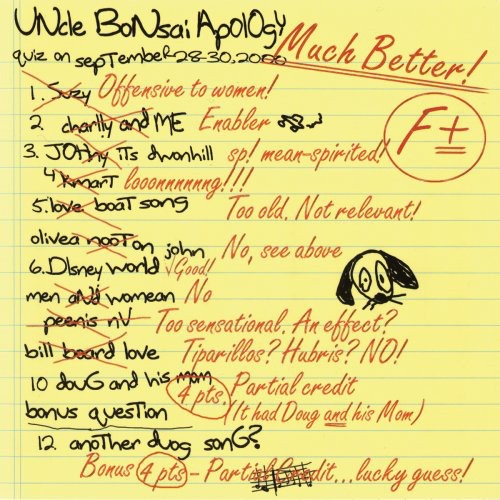 UNcle BoNsai ApolOgy
Much Better!
quiz on sepTembeR 28-30, 2000
F±
1. Suzy Offensive to women!
2. charlly and ME Enabler
3. JOhhy iTs dwonhill sp! mean-spirited!
4 Kmart looonnnnnng!!!
5. love boaT song Too old. Not relevant!
olivea nooToN john No, see above
6. DIsney world √Good!
men aNd womean No
peenis nV Too sensational. An effect?
bill board love Tiparillos? Hubris? NO!
10 douG and his mom 4 pts. Partial credit
bonus quesTion (It had Doug and his Mom)
12. anoTher duog sonG?
Bonus 4 pts - Partial Credit...lucky guess!